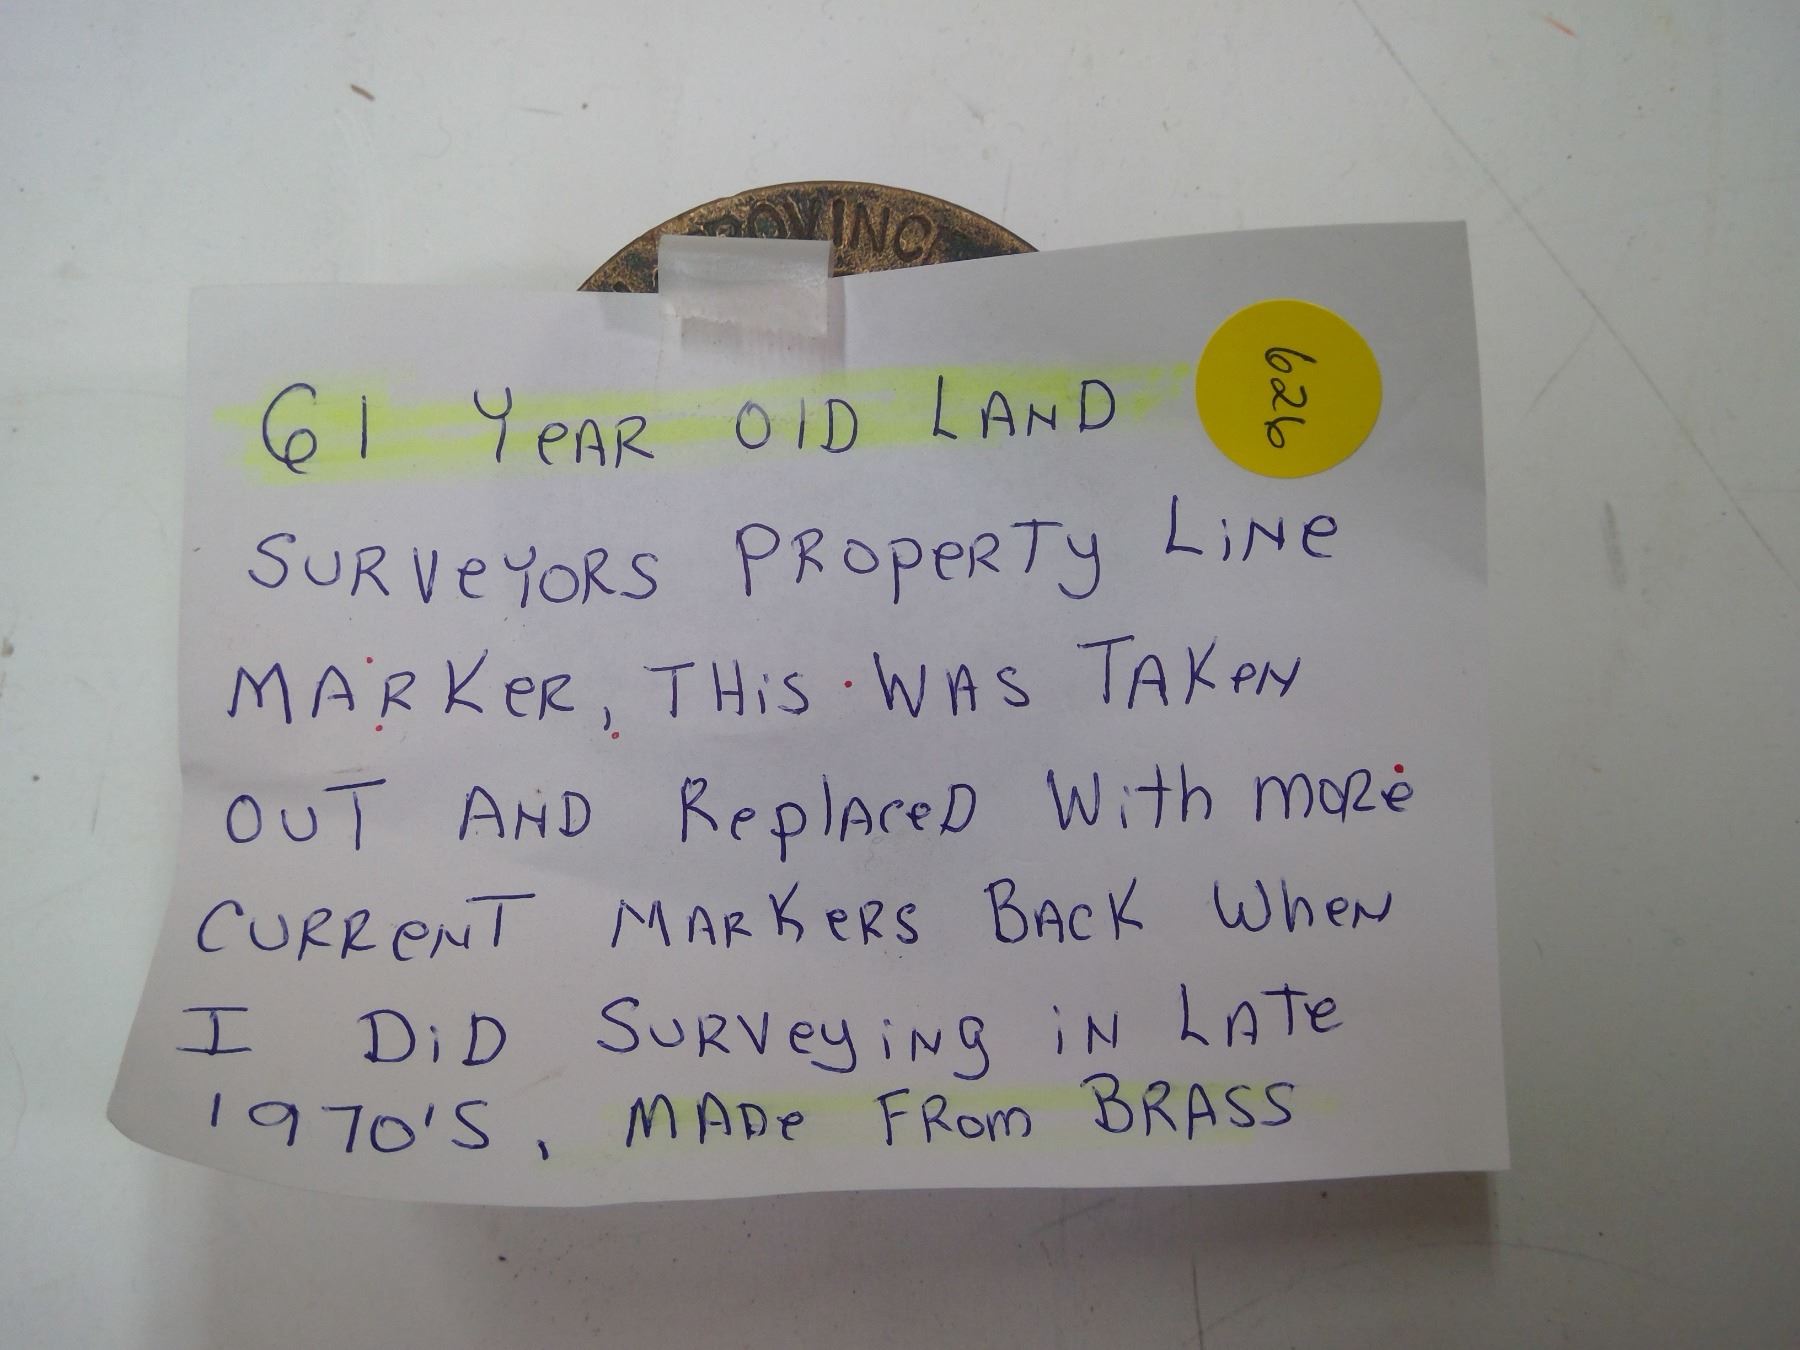 ROVINC
626
61 YeAR OlD LAND
SURVeYORS PROpeRTy LiNe
MARKeR, THiS WAS TAKeN
OUT AND ReplAceD With moRe
CURReNT MARKeRS BACK WheN
I DiD SURVeyiNg iN LATe
1970'S, MADe FRom BRASS